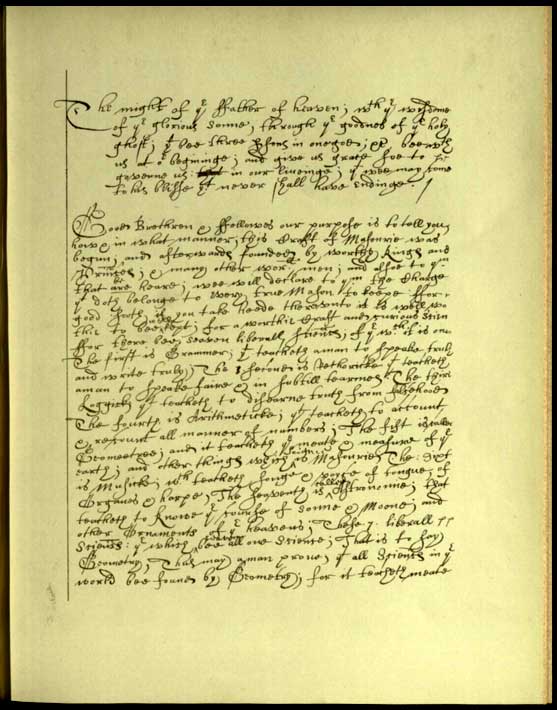 The might of ye ffather of heaven; wth ye wisdome
of ye glorious sonne, through ye goodnes of ye holy
ghost; yt bee three psons in one god, bee wth
us at ye beginninge; and give us grace soe to
governe us: in our liveinge; yt wee may come
to his blisse yt never shall have endinge.
Good Brethren & ffellowes our purpose is to tell you
how & in what manner, this Craft of Masonrie was
begun; and afterwards founded by worthy Kings and
Princes; & many other wor: men; and alsoe to ym
that are heare; wee will declare to ym the Charge
yt doth belonge to every true Mason to keepe ffor
good sooth, if you take heede thereunto it is well
this to bee kept; for a worthie Craft and curious
ffor there bee seaven liberall sciens; of ye wch it is one
The first is Grammer; yt teacheth a man to speake truly
and write truly; The second is Rethoricke yt teacheth
a man to speake faire & in subtill tearmes The third
Loggick yt teacheth to discerne truth from falsehood
The fourth is Arithmeticke; yt teacheth to account
& recount all manner of numbers; The fift is
Geometree; and it teacheth ye meate & measure of ye
earth; and other things which is Masonrie The: Sixt
is Musicke; wch teacheth songe & voyce of tongue; of
Organes & harpe; The seaventh is called Astronomie; that
teacheth to Knowe ye course of sonne & Moone; and
other Ornaments of ye heavens; These 7: liberall
Sciens: ye which bee all one science; That is to say
Geometry; Thus may a man prove; yt all Sciens in ye
world bee found by Geometry; for it teacheth meate